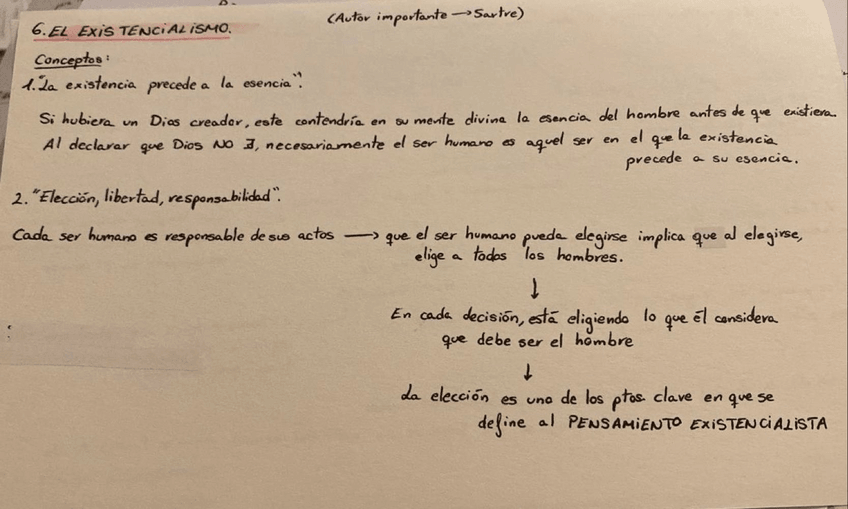 (Autor importante → Sartre)
6. EL EXISTENCIALISMO.
Conceptos:
1. "La existencia precede a la esencia".
Si hubiera un Dios creador, este contendría en su mente divina la esencia del hombre antes de que existiera.
Al declarar que Dios NO ∃, necesariamente el ser humano es aquel ser en el que la existencia
precede a su esencia.
2. "Elección, libertad, responsabilidad".
Cada ser humano es responsable de sus actos → que el ser humano pueda elegirse implica que al elegirse,
elige a todos los hombres.
↓
En cada decisión, está eligiendo lo que él considera
que debe ser el hombre
↓
La elección es uno de los ptos clave en que se
define al PENSAMIENTO EXISTENCIALISTA